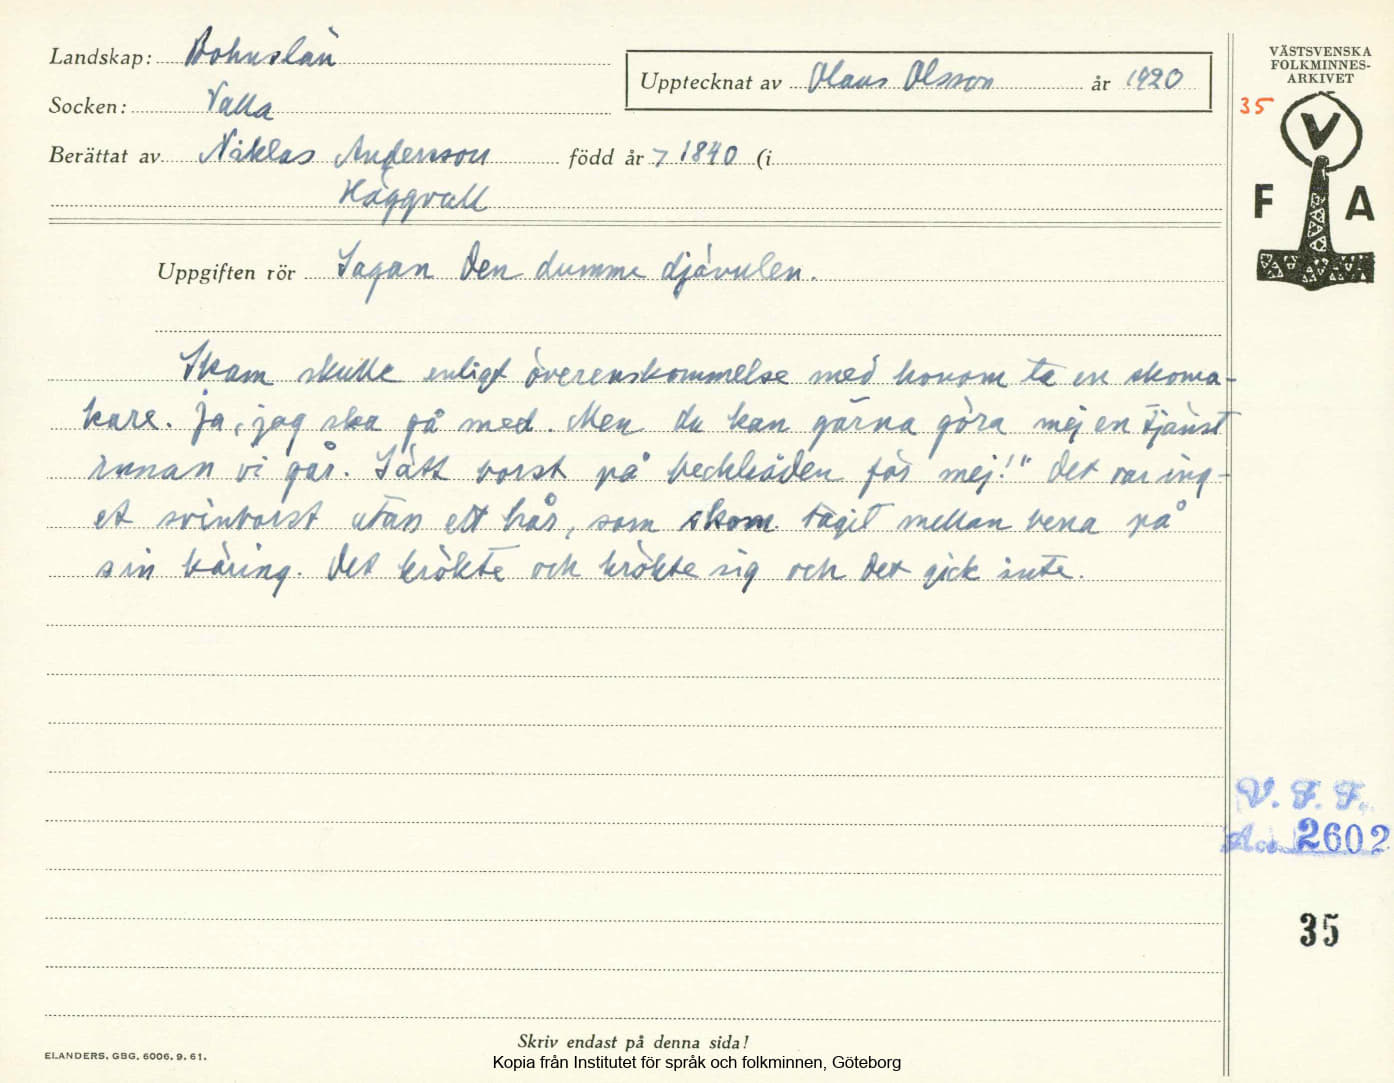 Landskap: Bohuslän
Socken: Valla
Upptecknat av Olaus Olsson år 1920
Berättat av Niklas Andersson född år 1840 (i
Häggvall
Uppgiften rör Sagan Den dumme djävulen.
Skam skulle enligt överenskommelse med honom ta en skoma-
kare. Ja, jag ska gå med. Men du kan gärna göra mej en tjänst
innan vi går. Sätt borst på becktråden för mej!" Det var ing-
et svinborst utan ett hår, som skom. tagit mellan bena på
sin käring. Det krökte och krökte sig och det gick inte.
VÄSTSVENSKA
FOLKMINNES-
ARKIVET
35
V
F A
V. F. F.
Acc. 2602
35
Skriv endast på denna sida!
ELANDERS, GBG, 6006. 9. 61.
Kopia från Institutet för språk och folkminnen, Göteborg